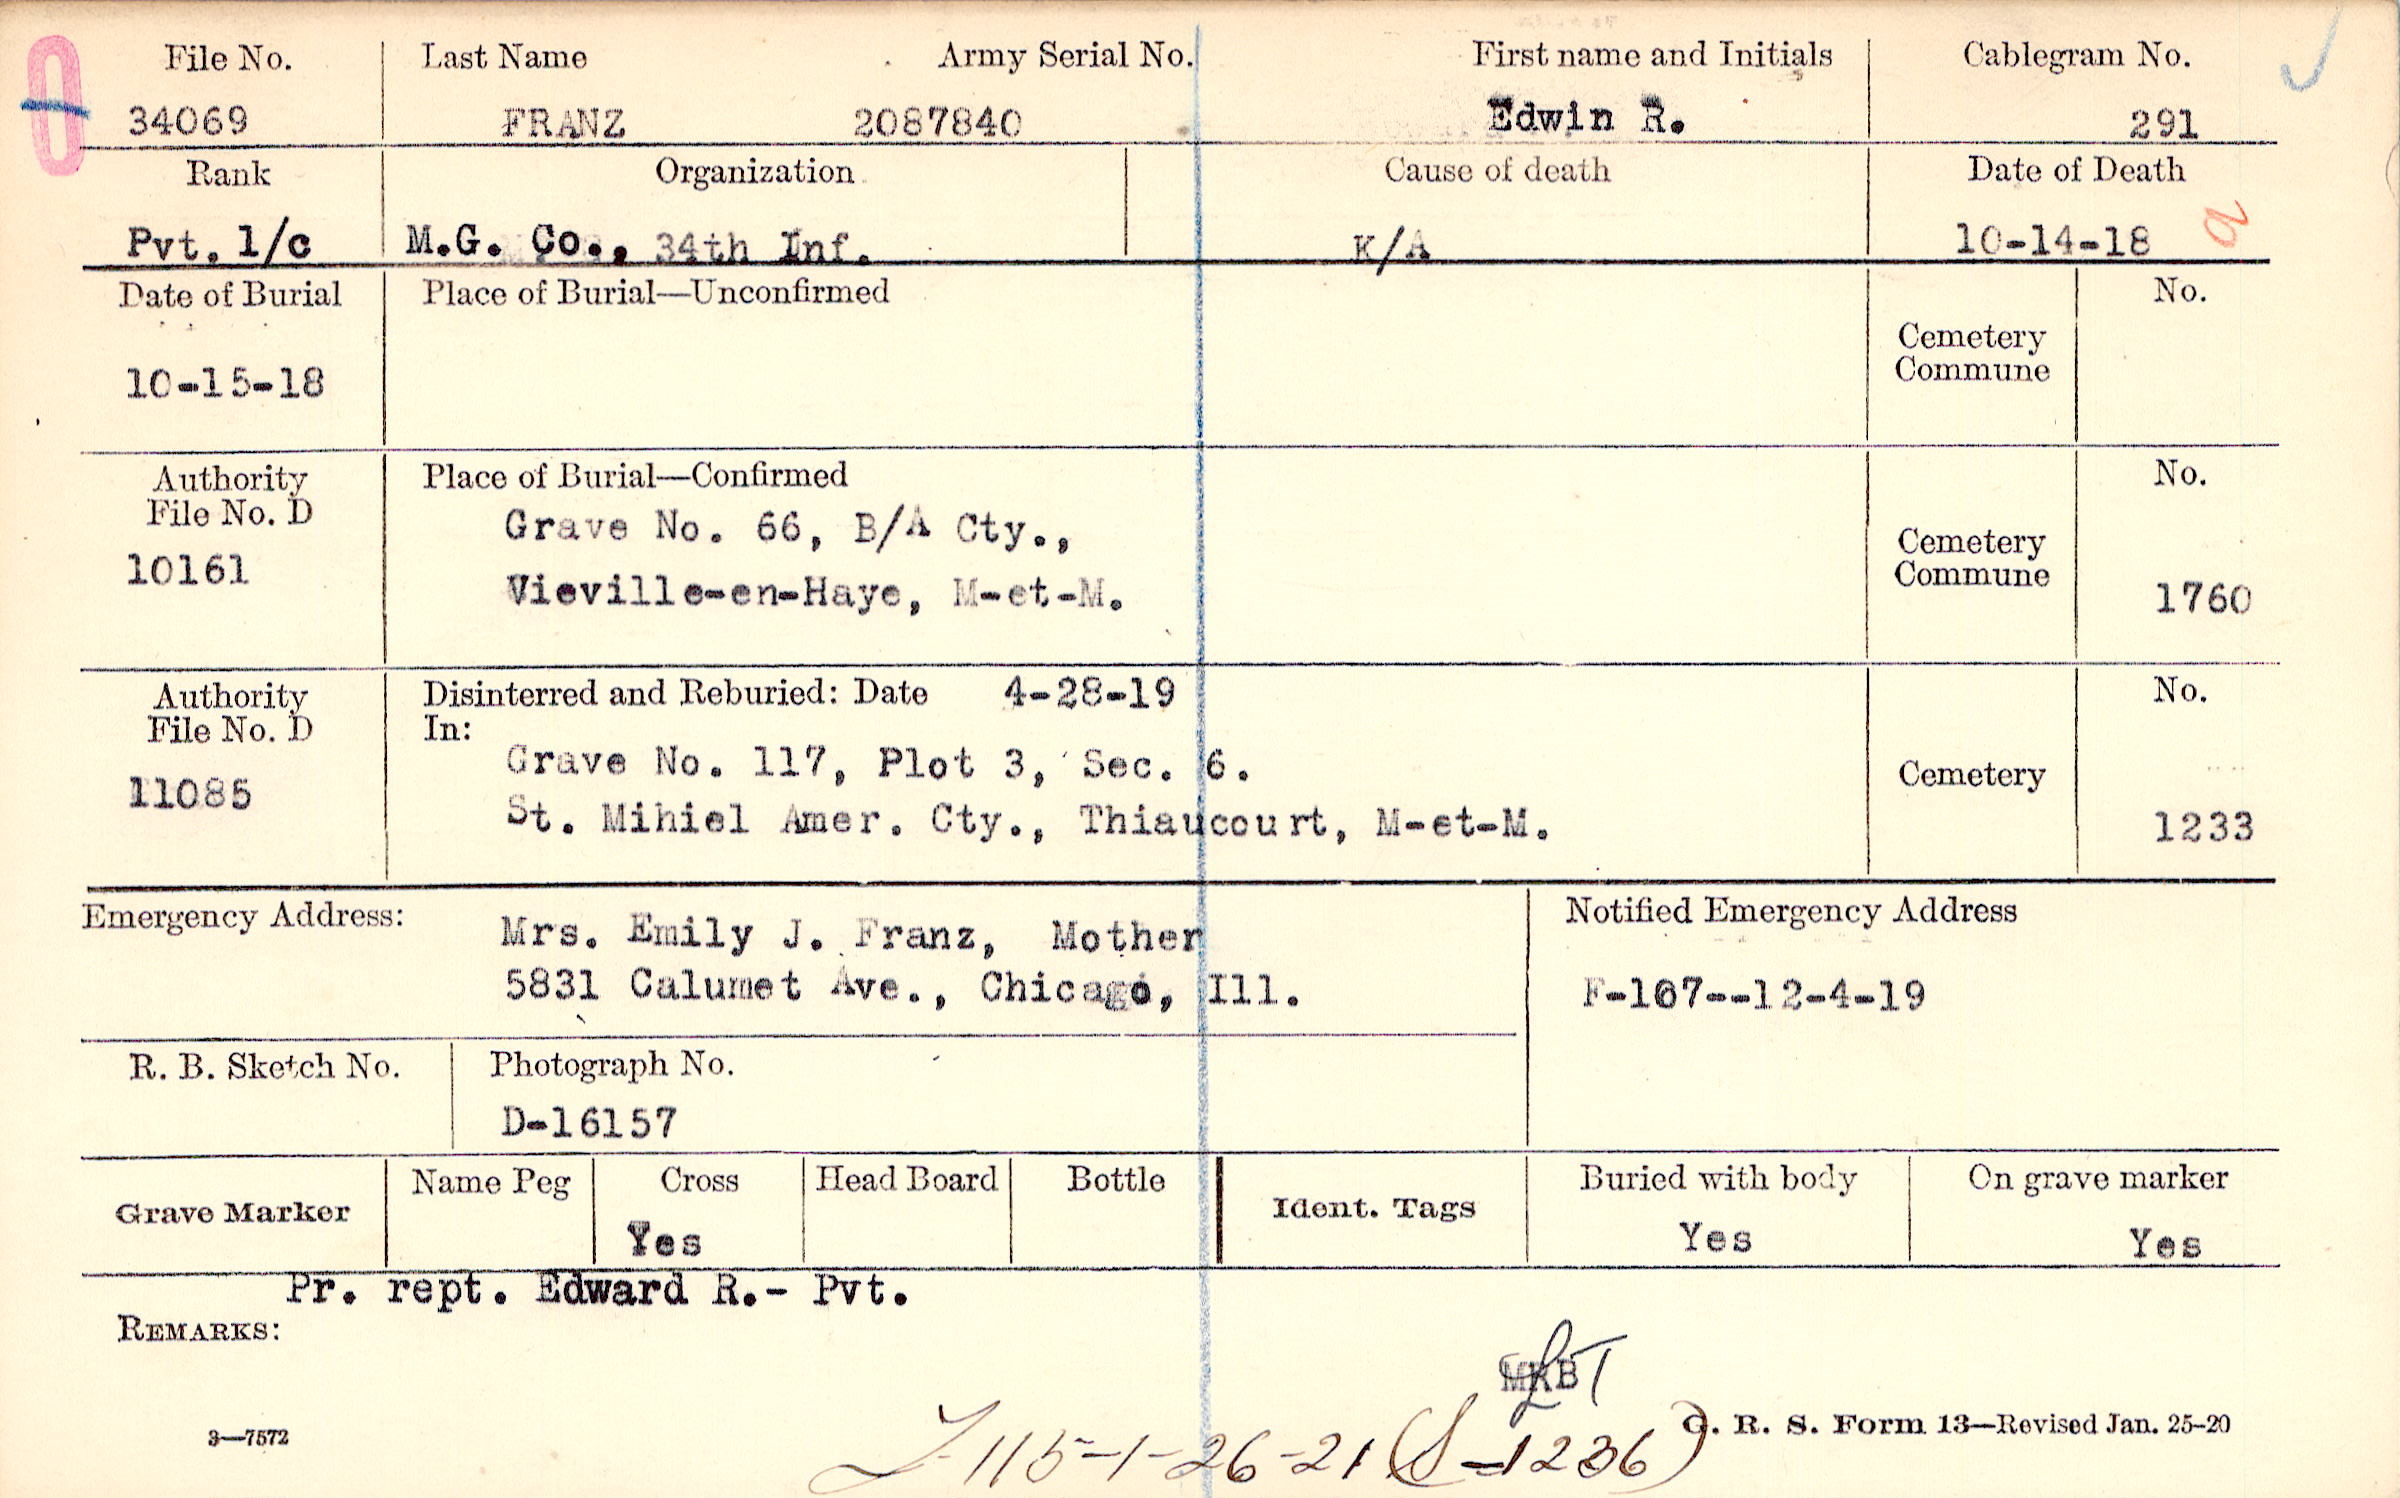 File No. Last Name Army Serial No. First name and Initials Cablegram No.
34069 FRANZ 2087840 Edwin R. 291
Rank Organization Cause of death Date of Death
Pvt. 1/c M.G. Co., 34th Inf. K/A 10-14-18
Date of Burial Place of Burial—Unconfirmed No.
Cemetery
Commune
10-15-18
Authority Place of Burial—Confirmed No.
File No. D
Grave No. 66, B/A Cty.,
Cemetery
Commune
10161
Vieville-en-Haye, M-et-M. 1760
Authority Disinterred and Reburied: Date 4-28-19 No.
File No. D In:
Grave No. 117, Plot 3, Sec. 6.
Cemetery
11085
St. Mihiel Amer. Cty., Thiaucourt, M-et-M. 1233
Emergency Address: Notified Emergency Address
Mrs. Emily J. Franz, Mother
5831 Calumet Ave., Chicago, Ill. F-167--12-4-19
R. B. Sketch No. Photograph No.
D-16157
Grave Marker Name Peg Cross Head Board Bottle Ident. Tags Buried with body On grave marker
Yes Yes Yes
Pr. rept. Edward R.- Pvt.
REMARKS:
MRB
3—7572 G. R. S. Form 13—Revised Jan. 25-20
115-1-26-21 (S-1236)